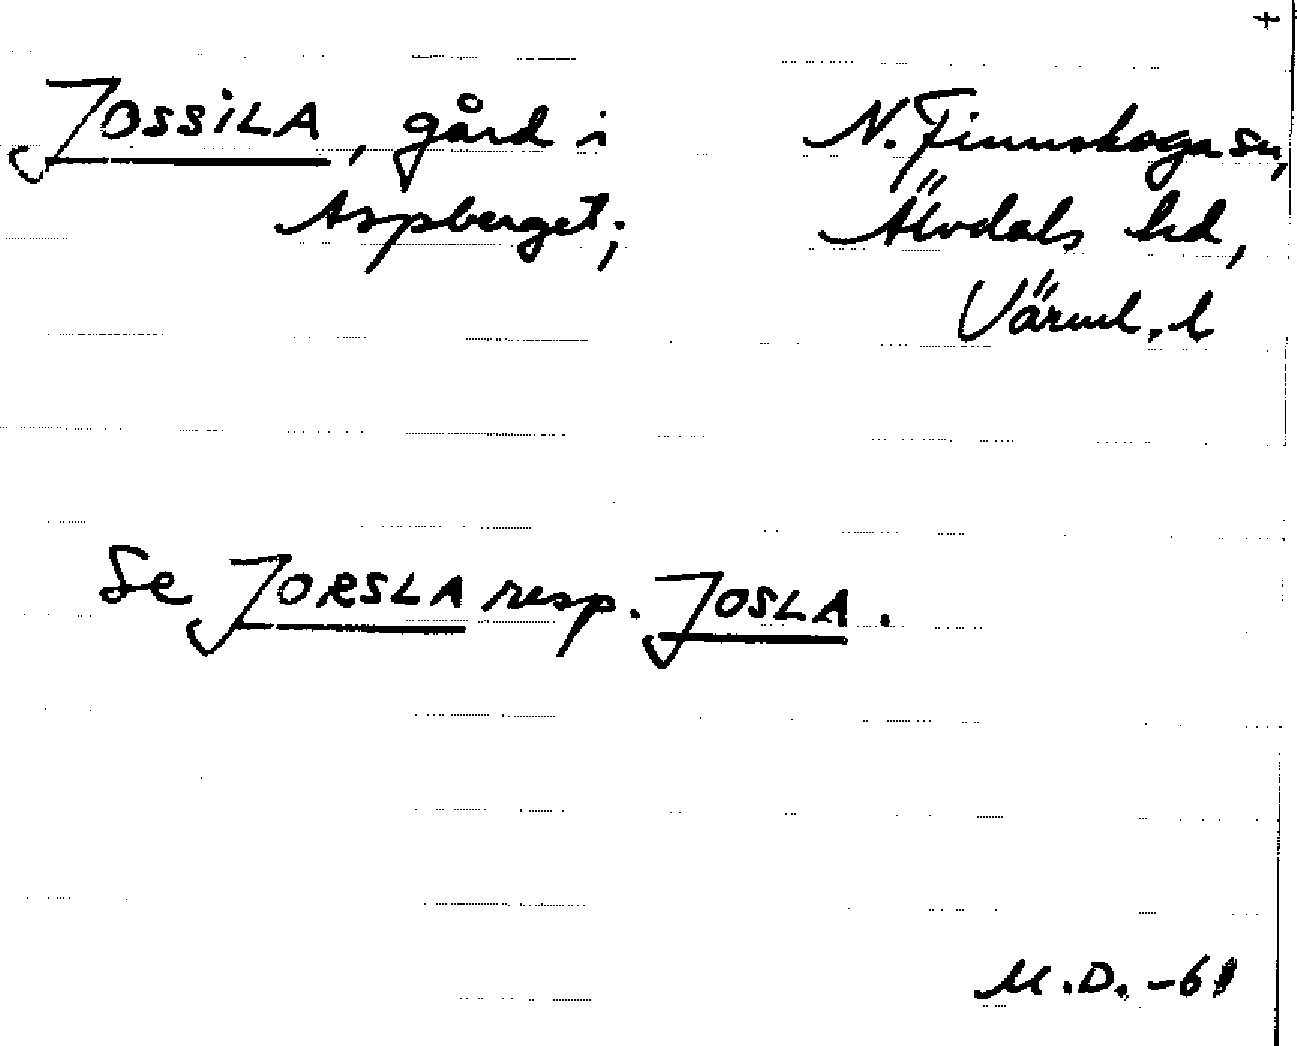 JOSSiLA, gård i
Aspberget;
N. Finnskoga sn,
Älvdals hd,
Värml. l
Se JORSLA resp. JOSLA.
M.D. -61